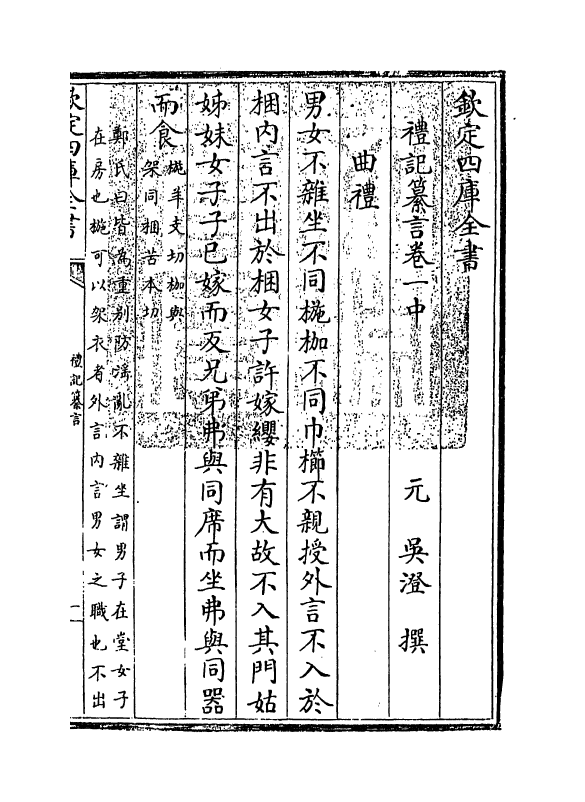 欽定四庫全書
禮記纂言卷一中
元 吳澄 撰
曲禮
男女不雜坐不同椸枷不同巾櫛不親授外言不入於
梱内言不出於梱女子許嫁纓非有大故不入其門姑
姊妹女子子已嫁而反兄弟弗與同席而坐弗與同器
而食
椸羊支切枷與
架同梱苦本切
鄭氏曰皆為重别防淫亂不雜坐謂男子在堂女子
在房也椸可以架衣者外言内言男女之職也不出
欽定四庫全書
禮記纂言
一